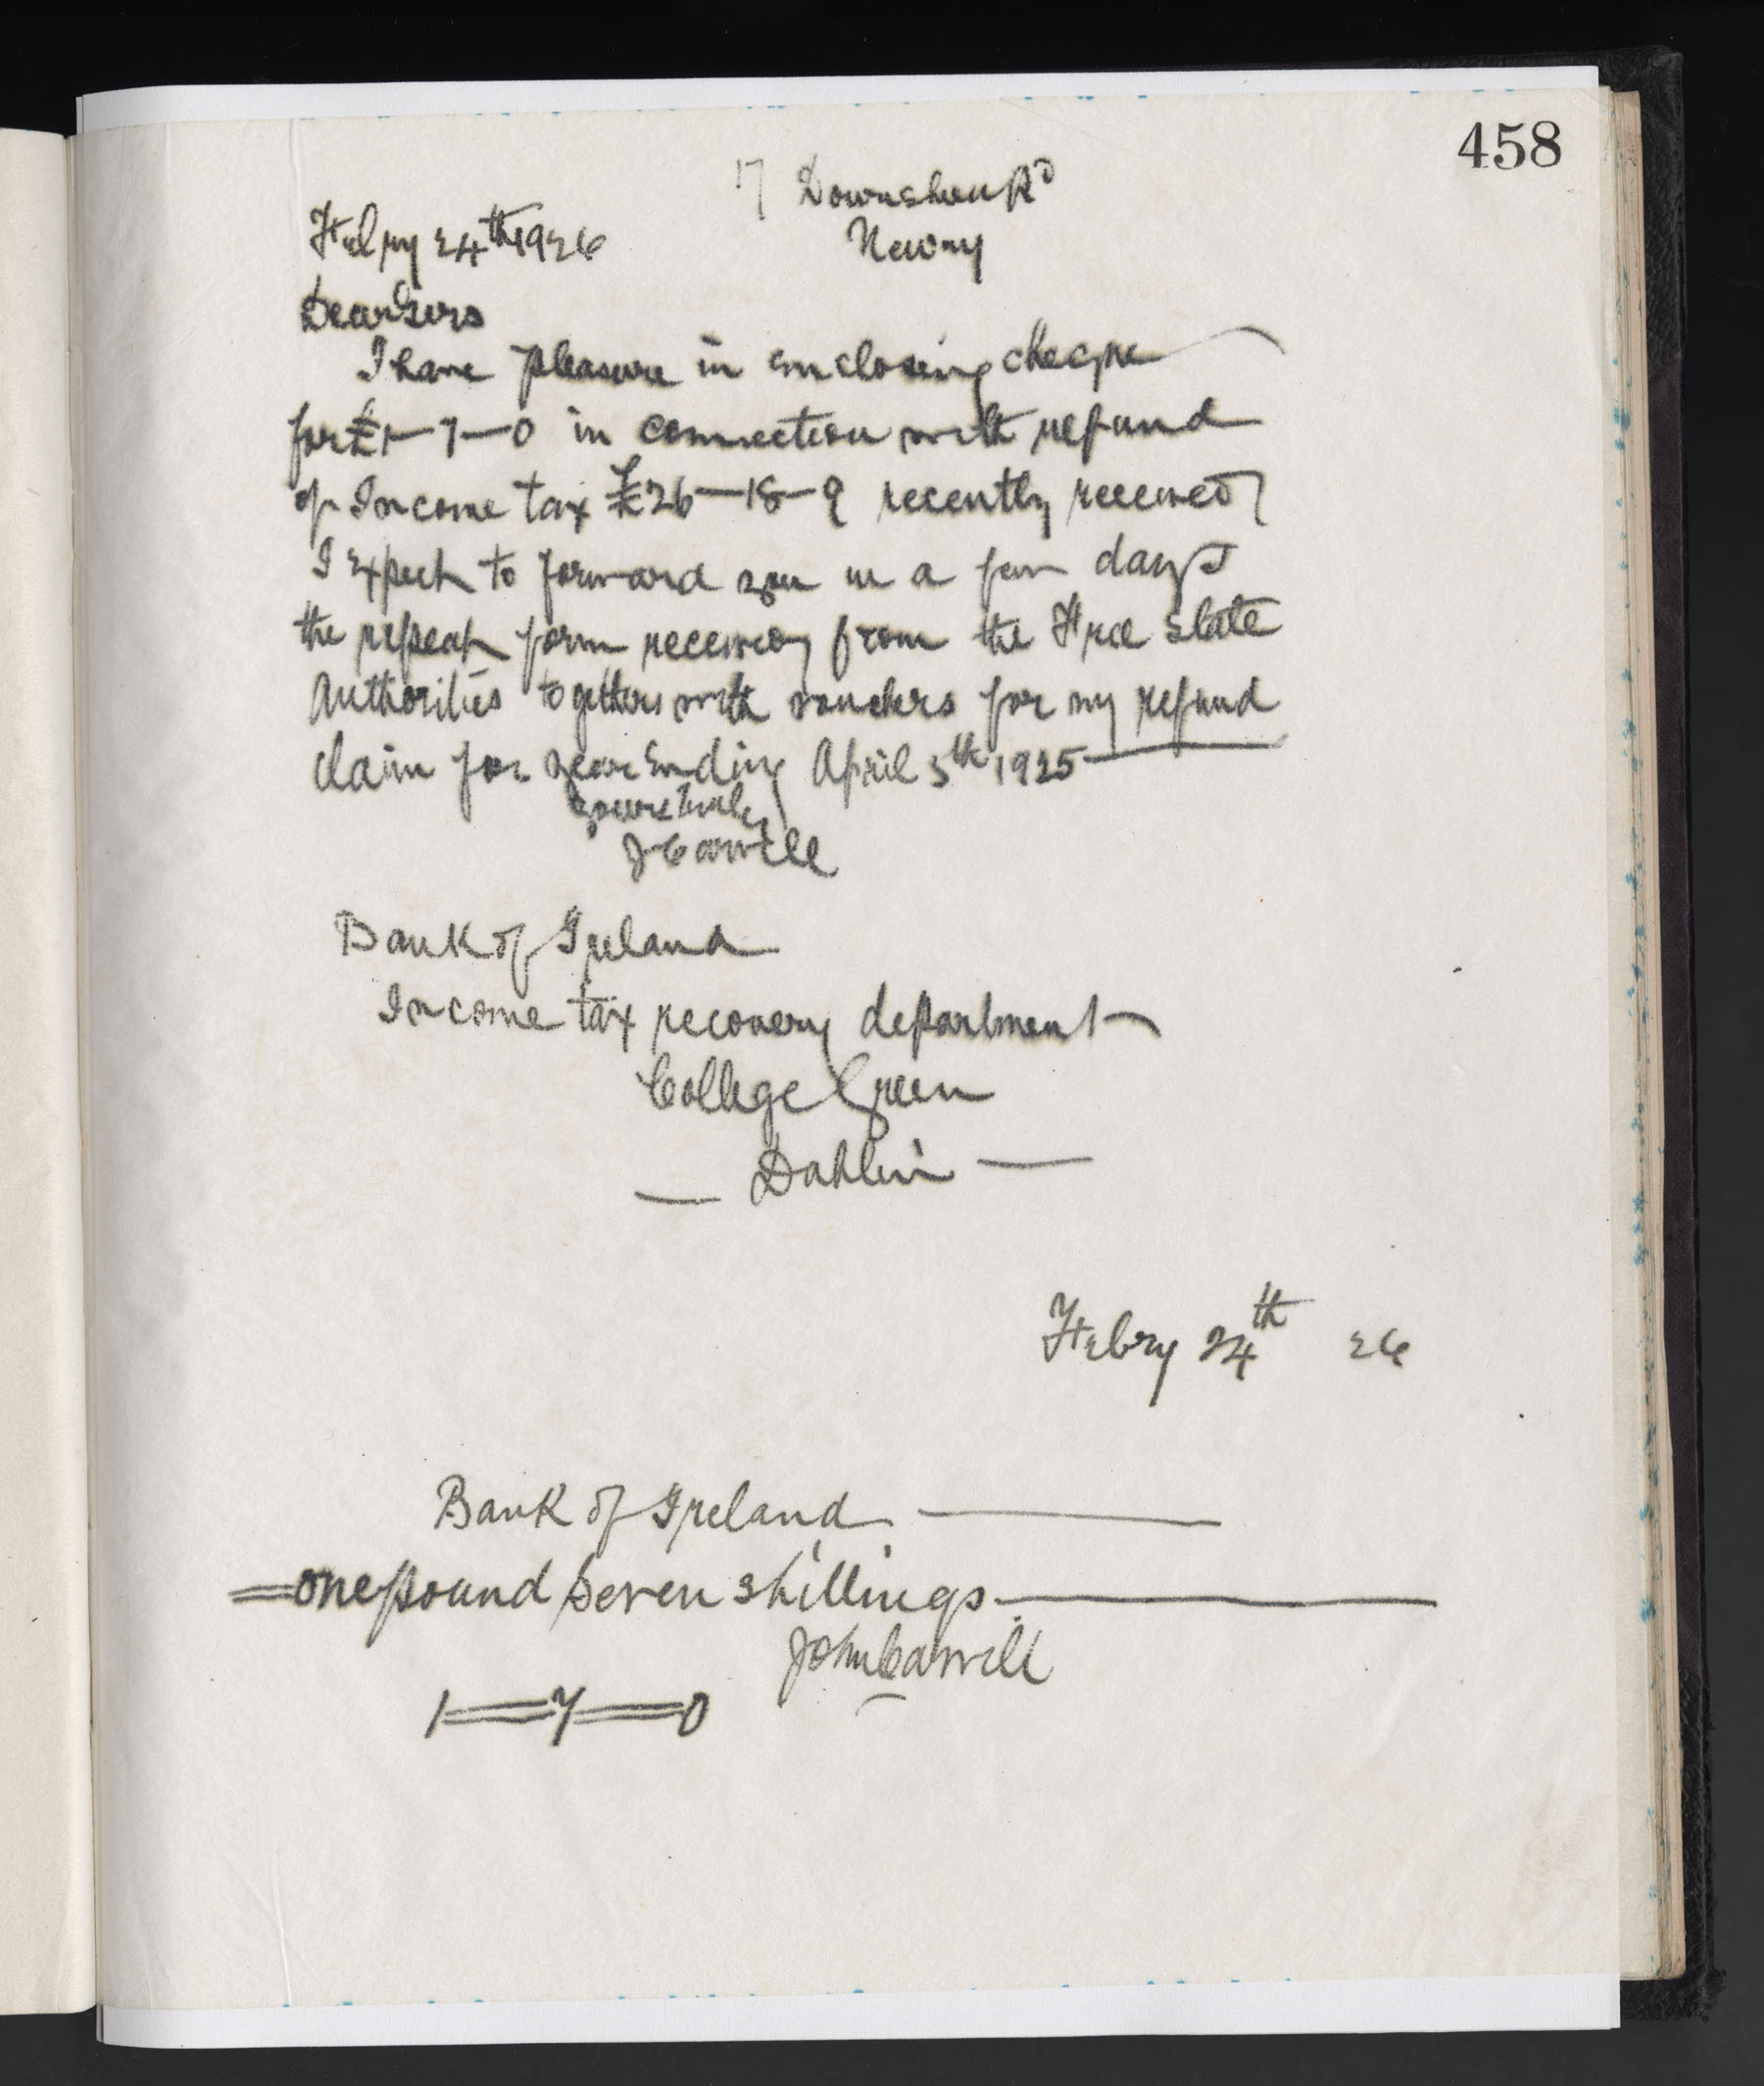 458
17 Downshire Rd
Febry 24th 1926
Newry
Dear Sirs
I have pleasure in enclosing cheque
for £1-7-0 in connection with refund
of Income tax £26-18-9 recently received
I expect to forward you in a few days
the repeat form received from the Free State
Authorities together with vouchers for my refund
claim for year Ending April 5th 1925
yours truly
J Carvill
Bank of Ireland
Income tax recovery department
College Green
Dublin
Febry 24th 26
Bank of Ireland
one pound seven shillings
John Carvill
1=7=0